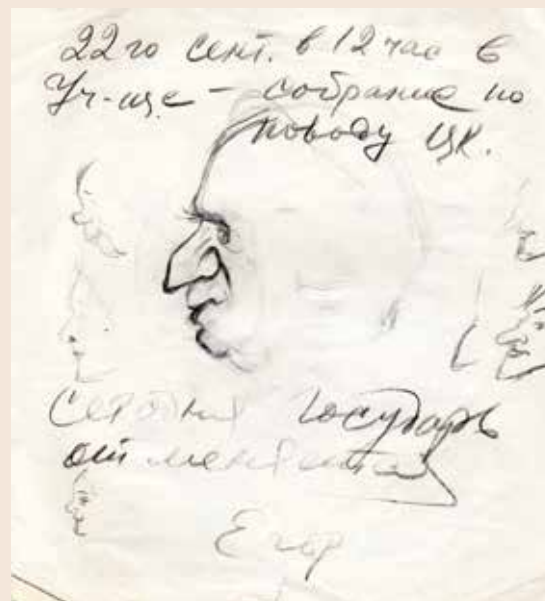 22го сент. в 12 час в
Уч-ще – собрание по
поводу ЦК.
Сегодня Государь
отменяется
Егор